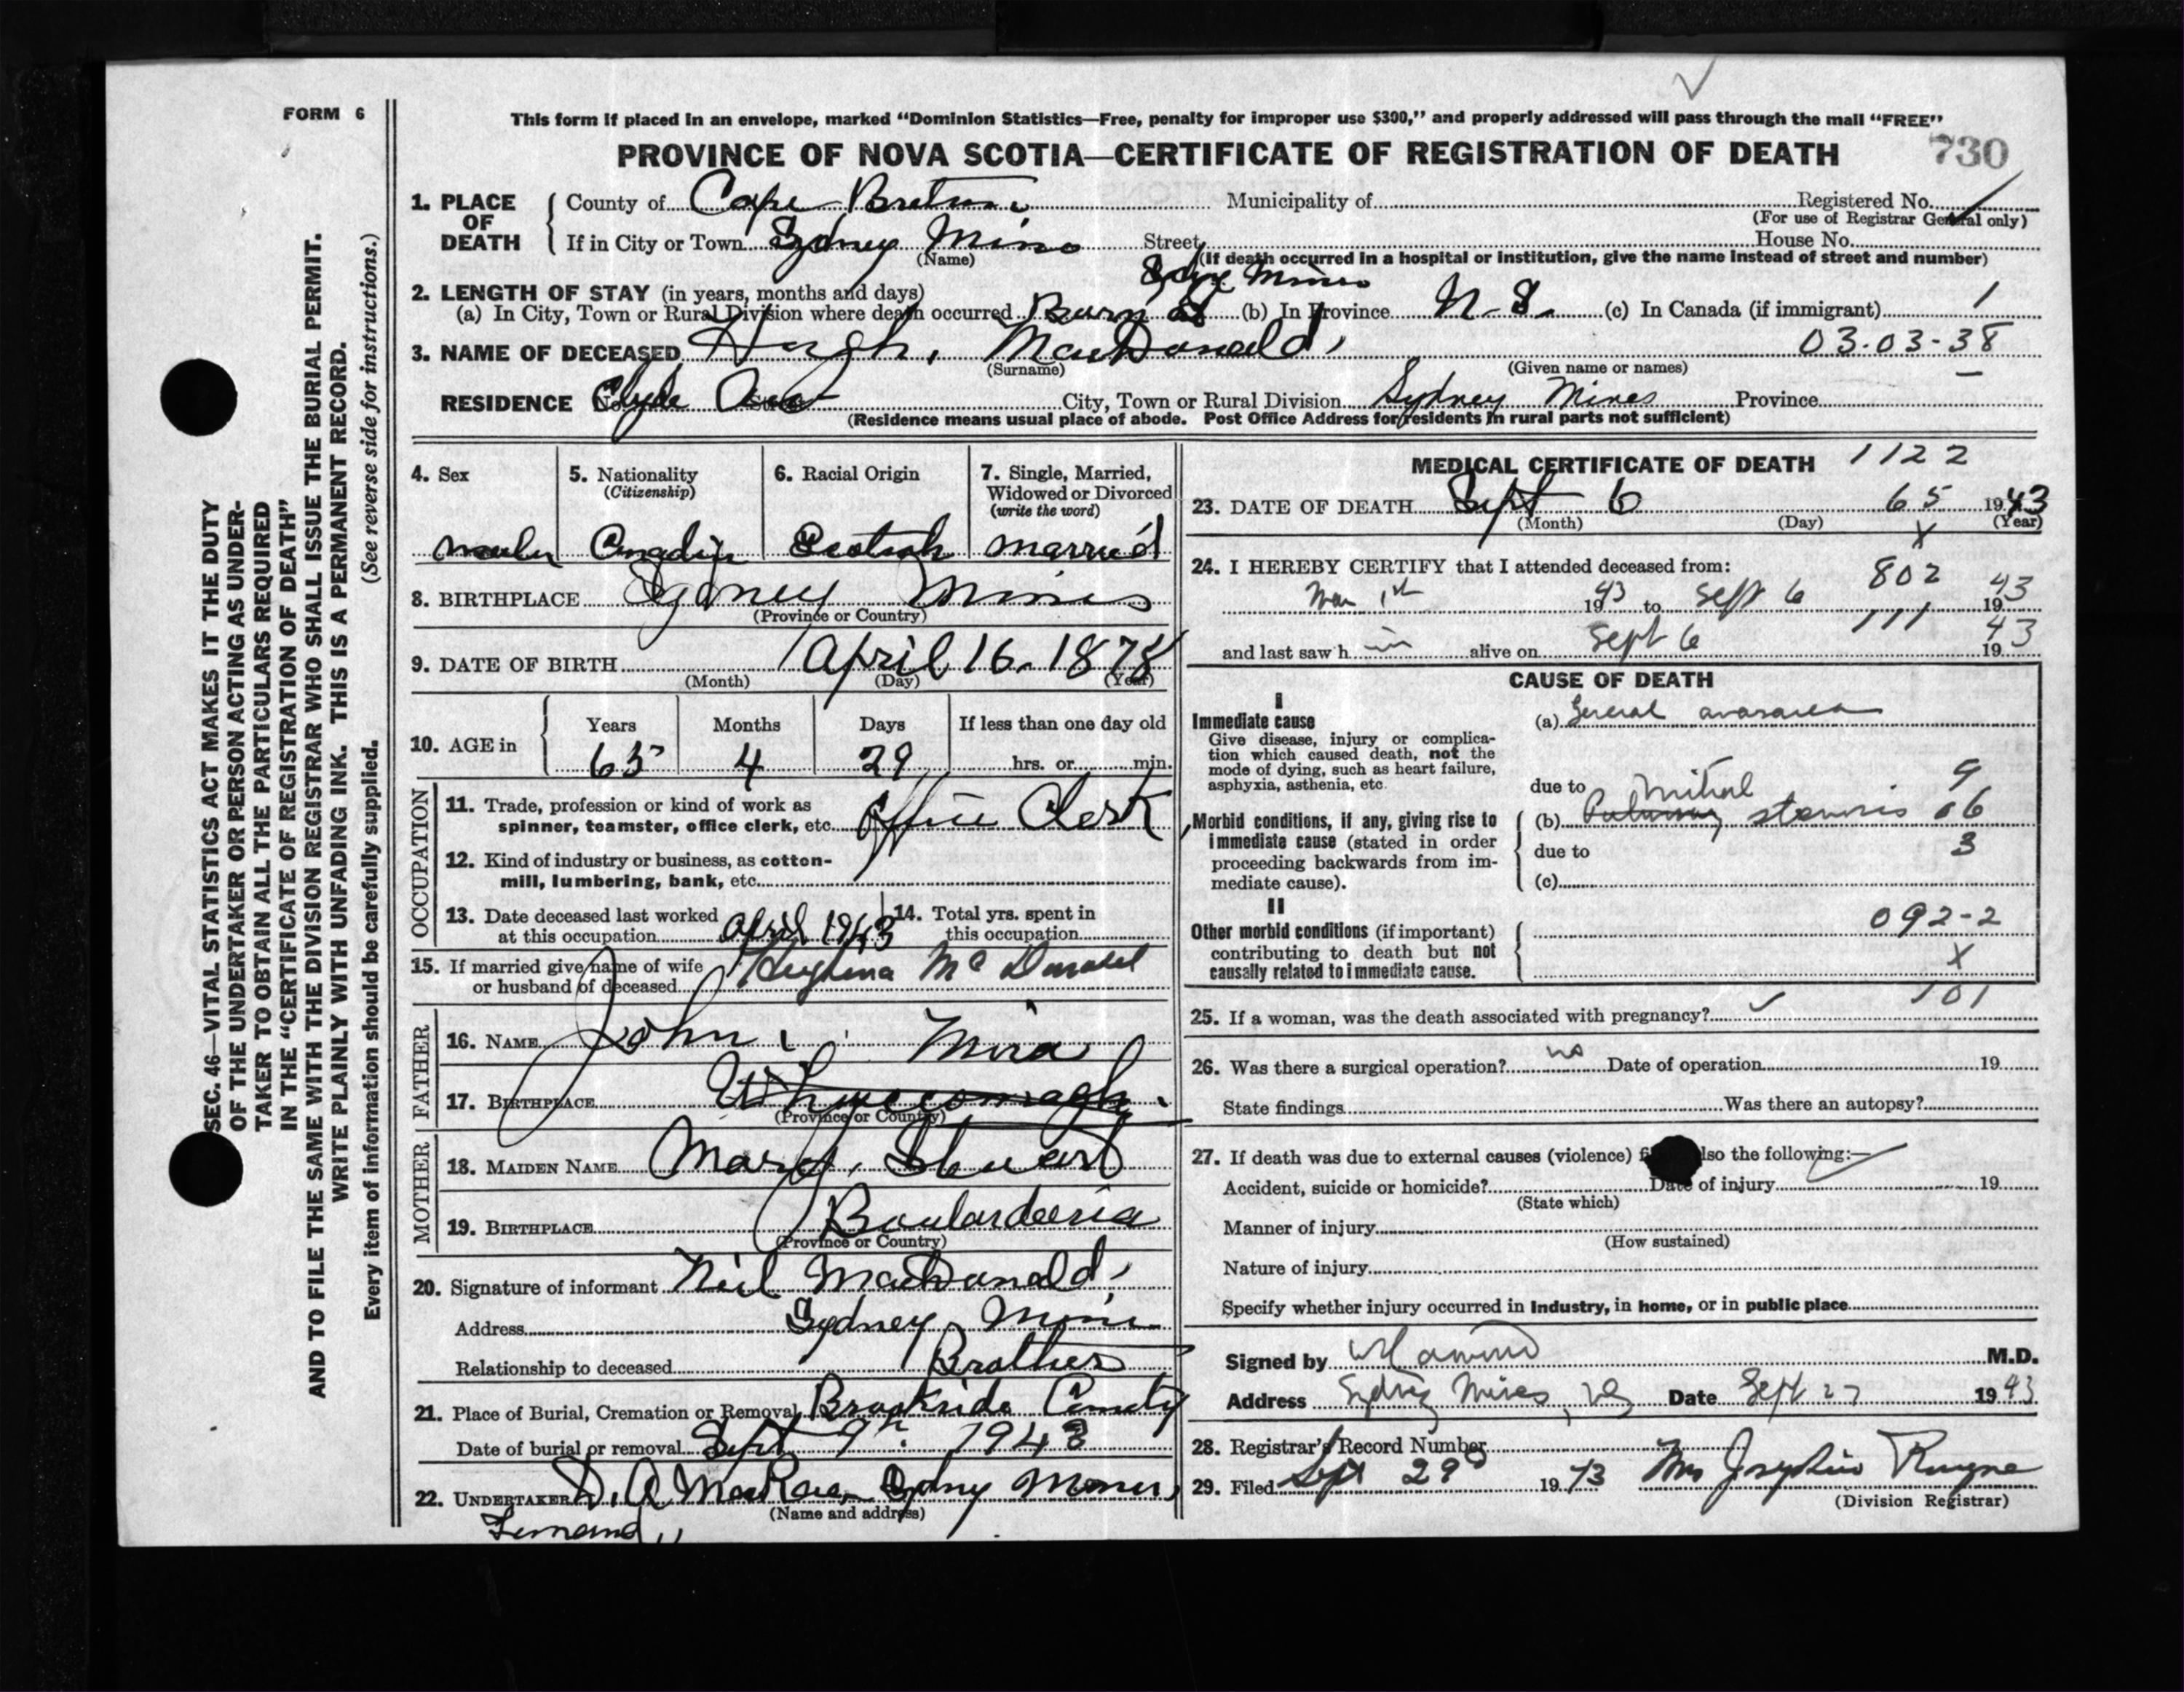 FORM 6
This form if placed in an envelope, marked "Dominion Statistics—Free, penalty for improper use $300," and properly addressed will pass through the mail "FREE"
PROVINCE OF NOVA SCOTIA—CERTIFICATE OF REGISTRATION OF DEATH 730
SEC. 46—VITAL STATISTICS ACT MAKES IT THE DUTY
OF THE UNDERTAKER OR PERSON ACTING AS UNDER-
TAKER TO OBTAIN ALL THE PARTICULARS REQUIRED
IN THE "CERTIFICATE OF REGISTRATION OF DEATH"
AND TO FILE THE SAME WITH THE DIVISION REGISTRAR WHO SHALL ISSUE THE BURIAL PERMIT.
WRITE PLAINLY WITH UNFADING INK. THIS IS A PERMANENT RECORD.
Every item of information should be carefully supplied. (See reverse side for instructions.)
1. PLACE OF DEATH
County of Cape Breton Municipality of Registered No.
(For use of Registrar General only)
If in City or Town Sydney Mines Street House No.
(Name) (If death occurred in a hospital or institution, give the name instead of street and number)
2. LENGTH OF STAY (in years, months and days) Mines
(a) In City, Town or Rural Division where death occurred Born at (b) In Province N.S. (c) In Canada (if immigrant) 1
3. NAME OF DECEASED Hugh, MacDonald, 03.03-38
(Surname) (Given name or names)
RESIDENCE No. Clyde Ave Street City, Town or Rural Division Sydney Mines Province
(Residence means usual place of abode. Post Office Address for residents in rural parts not sufficient)
4. Sex
5. Nationality
(Citizenship)
6. Racial Origin
7. Single, Married,
Widowed or Divorced
(write the word)
Scotsh married
8. BIRTHPLACE Sydney Mines
(Province or Country)
9. DATE OF BIRTH April 16. 1878
(Month) (Day) (Year)
10. AGE in
Years Months Days If less than one day old
65 4 29 hrs. or min.
OCCUPATION
11. Trade, profession or kind of work as
spinner, teamster, office clerk, etc. Office Clerk
12. Kind of industry or business, as cotton-
mill, lumbering, bank, etc.
13. Date deceased last worked
at this occupation April 1943
14. Total yrs. spent in
this occupation
15. If married give name of wife
or husband of deceased Hughena McDonald
FATHER
16. NAME John
Mira
17. BIRTHPLACE Whycocomagh.
(Province or Country)
MOTHER
18. MAIDEN NAME Mary, Stewart
19. BIRTHPLACE Boularderia
(Province or Country)
20. Signature of informant Neil MacDonald,
Address Sydney Mines
Relationship to deceased Brother
21. Place of Burial, Cremation or Removal Brookside
Date of burial or removal Sept 9th. 1943
22. UNDERTAKER D. A MacRae, Sydney Mines,
(Name and address)
MEDICAL CERTIFICATE OF DEATH 1122
23. DATE OF DEATH Sept 6 65 1943
(Month) (Day) (Year)
X
24. I HEREBY CERTIFY that I attended deceased from: 802
1st 1943 to Sept 6 1943
111
and last saw him alive on Sept 6 1943
CAUSE OF DEATH
I
Immediate cause
Give disease, injury or complica-
tion which caused death, not the
mode of dying, such as heart failure,
asphyxia, asthenia, etc.
(a) General anasarca
due to Mitral 9
Morbid conditions, if any, giving rise to
immediate cause (stated in order
proceeding backwards from im-
mediate cause).
(b) Pulmonary stenosis 06
due to 3
(c)
II
Other morbid conditions (if important)
contributing to death but not
causally related to immediate cause.
092-2
X
101
25. If a woman, was the death associated with pregnancy?
26. Was there a surgical operation? no Date of operation 19
State findings Was there an autopsy?
27. If death was due to external causes (violence) also the following:—
Accident, suicide or homicide? Date of injury 19
(State which)
Manner of injury
(How sustained)
Nature of injury
Specify whether injury occurred in industry, in home, or in public place
Signed by M.D.
Address Sydney Mines, NS Date Sept 27 1943
28. Registrar's Record Number
29. Filed Sept 29 1943 Mrs
(Division Registrar)